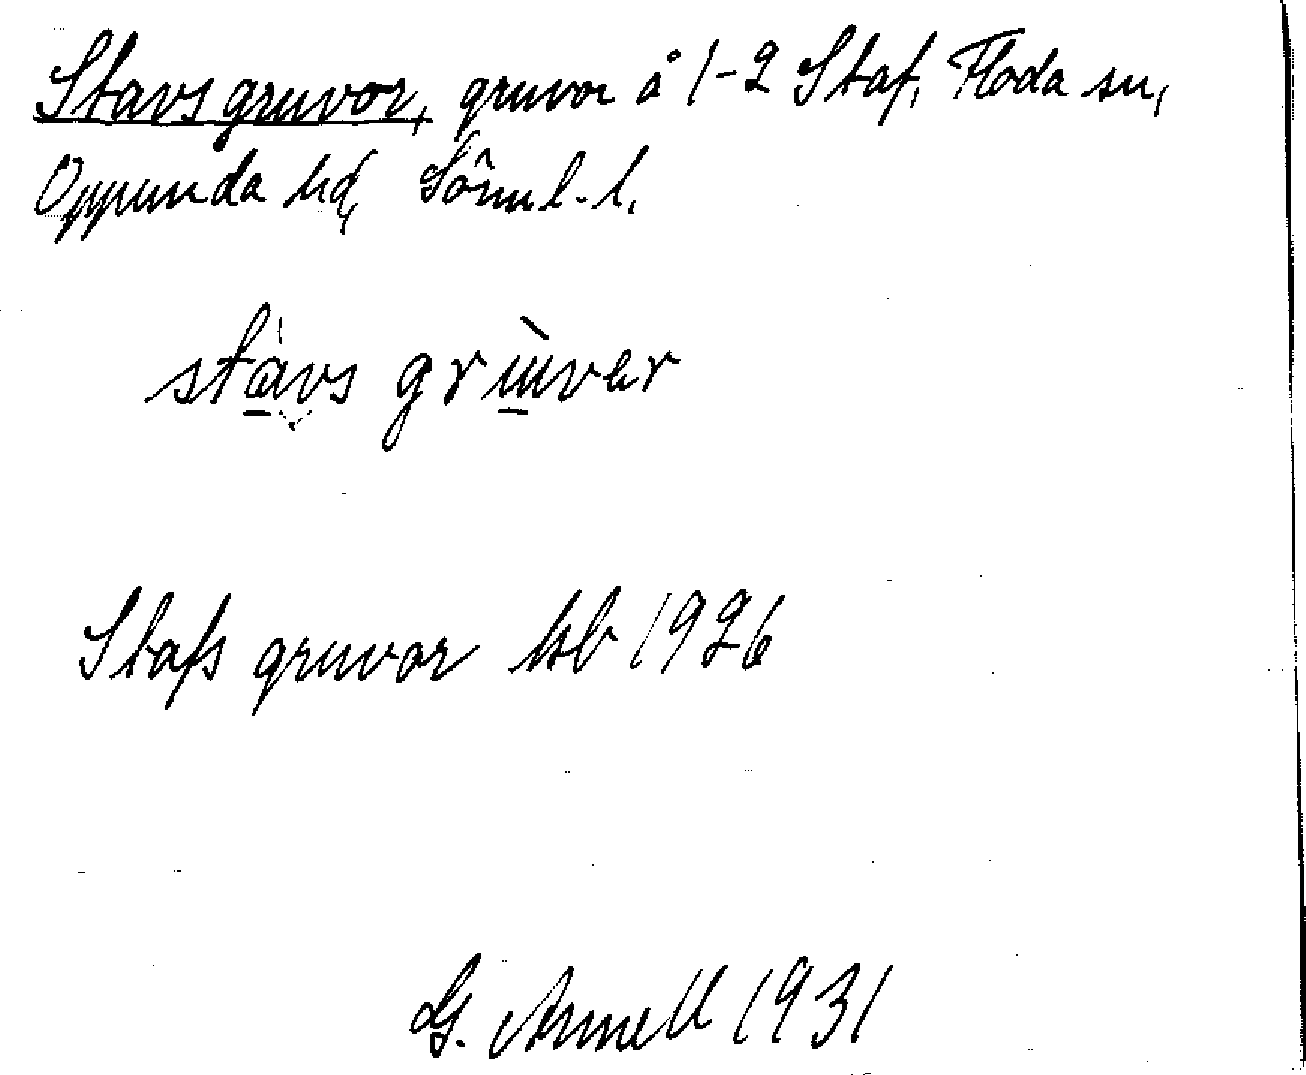 Stavsgruvor, gruvor å 1-2 Staf, Floda sn,
Oppunda hd, Sörml. l.
stàvs grùver
Stafs gruvor kb 1926
G. Arnell 1931